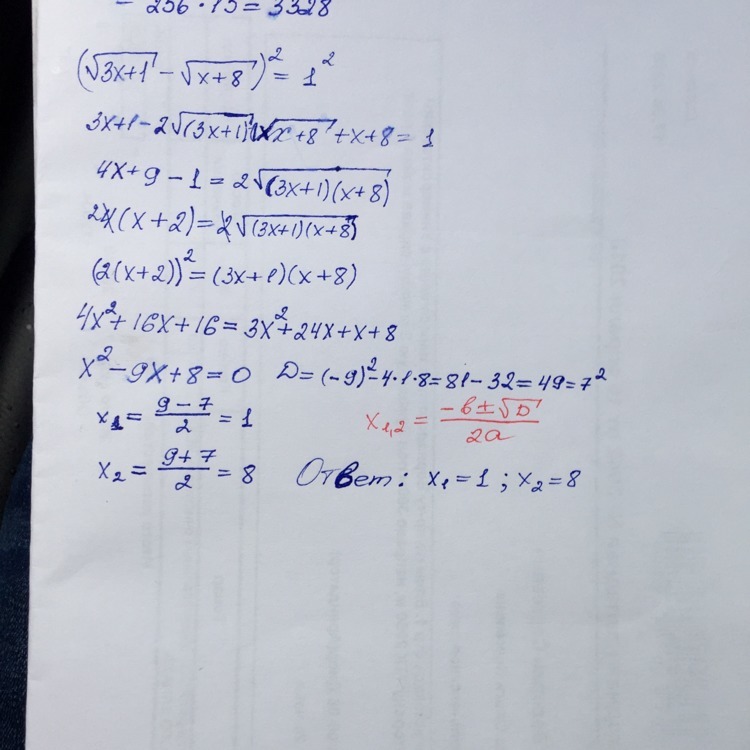 = 256 · 13 = 3328
(√(3x+1) - √(x+8))² = 1²
3x+1-2√((3x+1)(x+8)) + x+8 = 1
4x+9-1 = 2√((3x+1)(x+8))
24(x+2) = 2√((3x+1)(x+8))
(2(x+2))² = (3x+1)(x+8)
4x²+16x+16 = 3x²+24x+x+8
x²-9x+8=0 D=(-9)²-4·1·8=81-32=49=7²
x₁ = (9-7)/2 = 1 x₁,₂ = (-b±√D)/2a
x₂ = (9+7)/2 = 8 Ответ: x₁=1; x₂=8